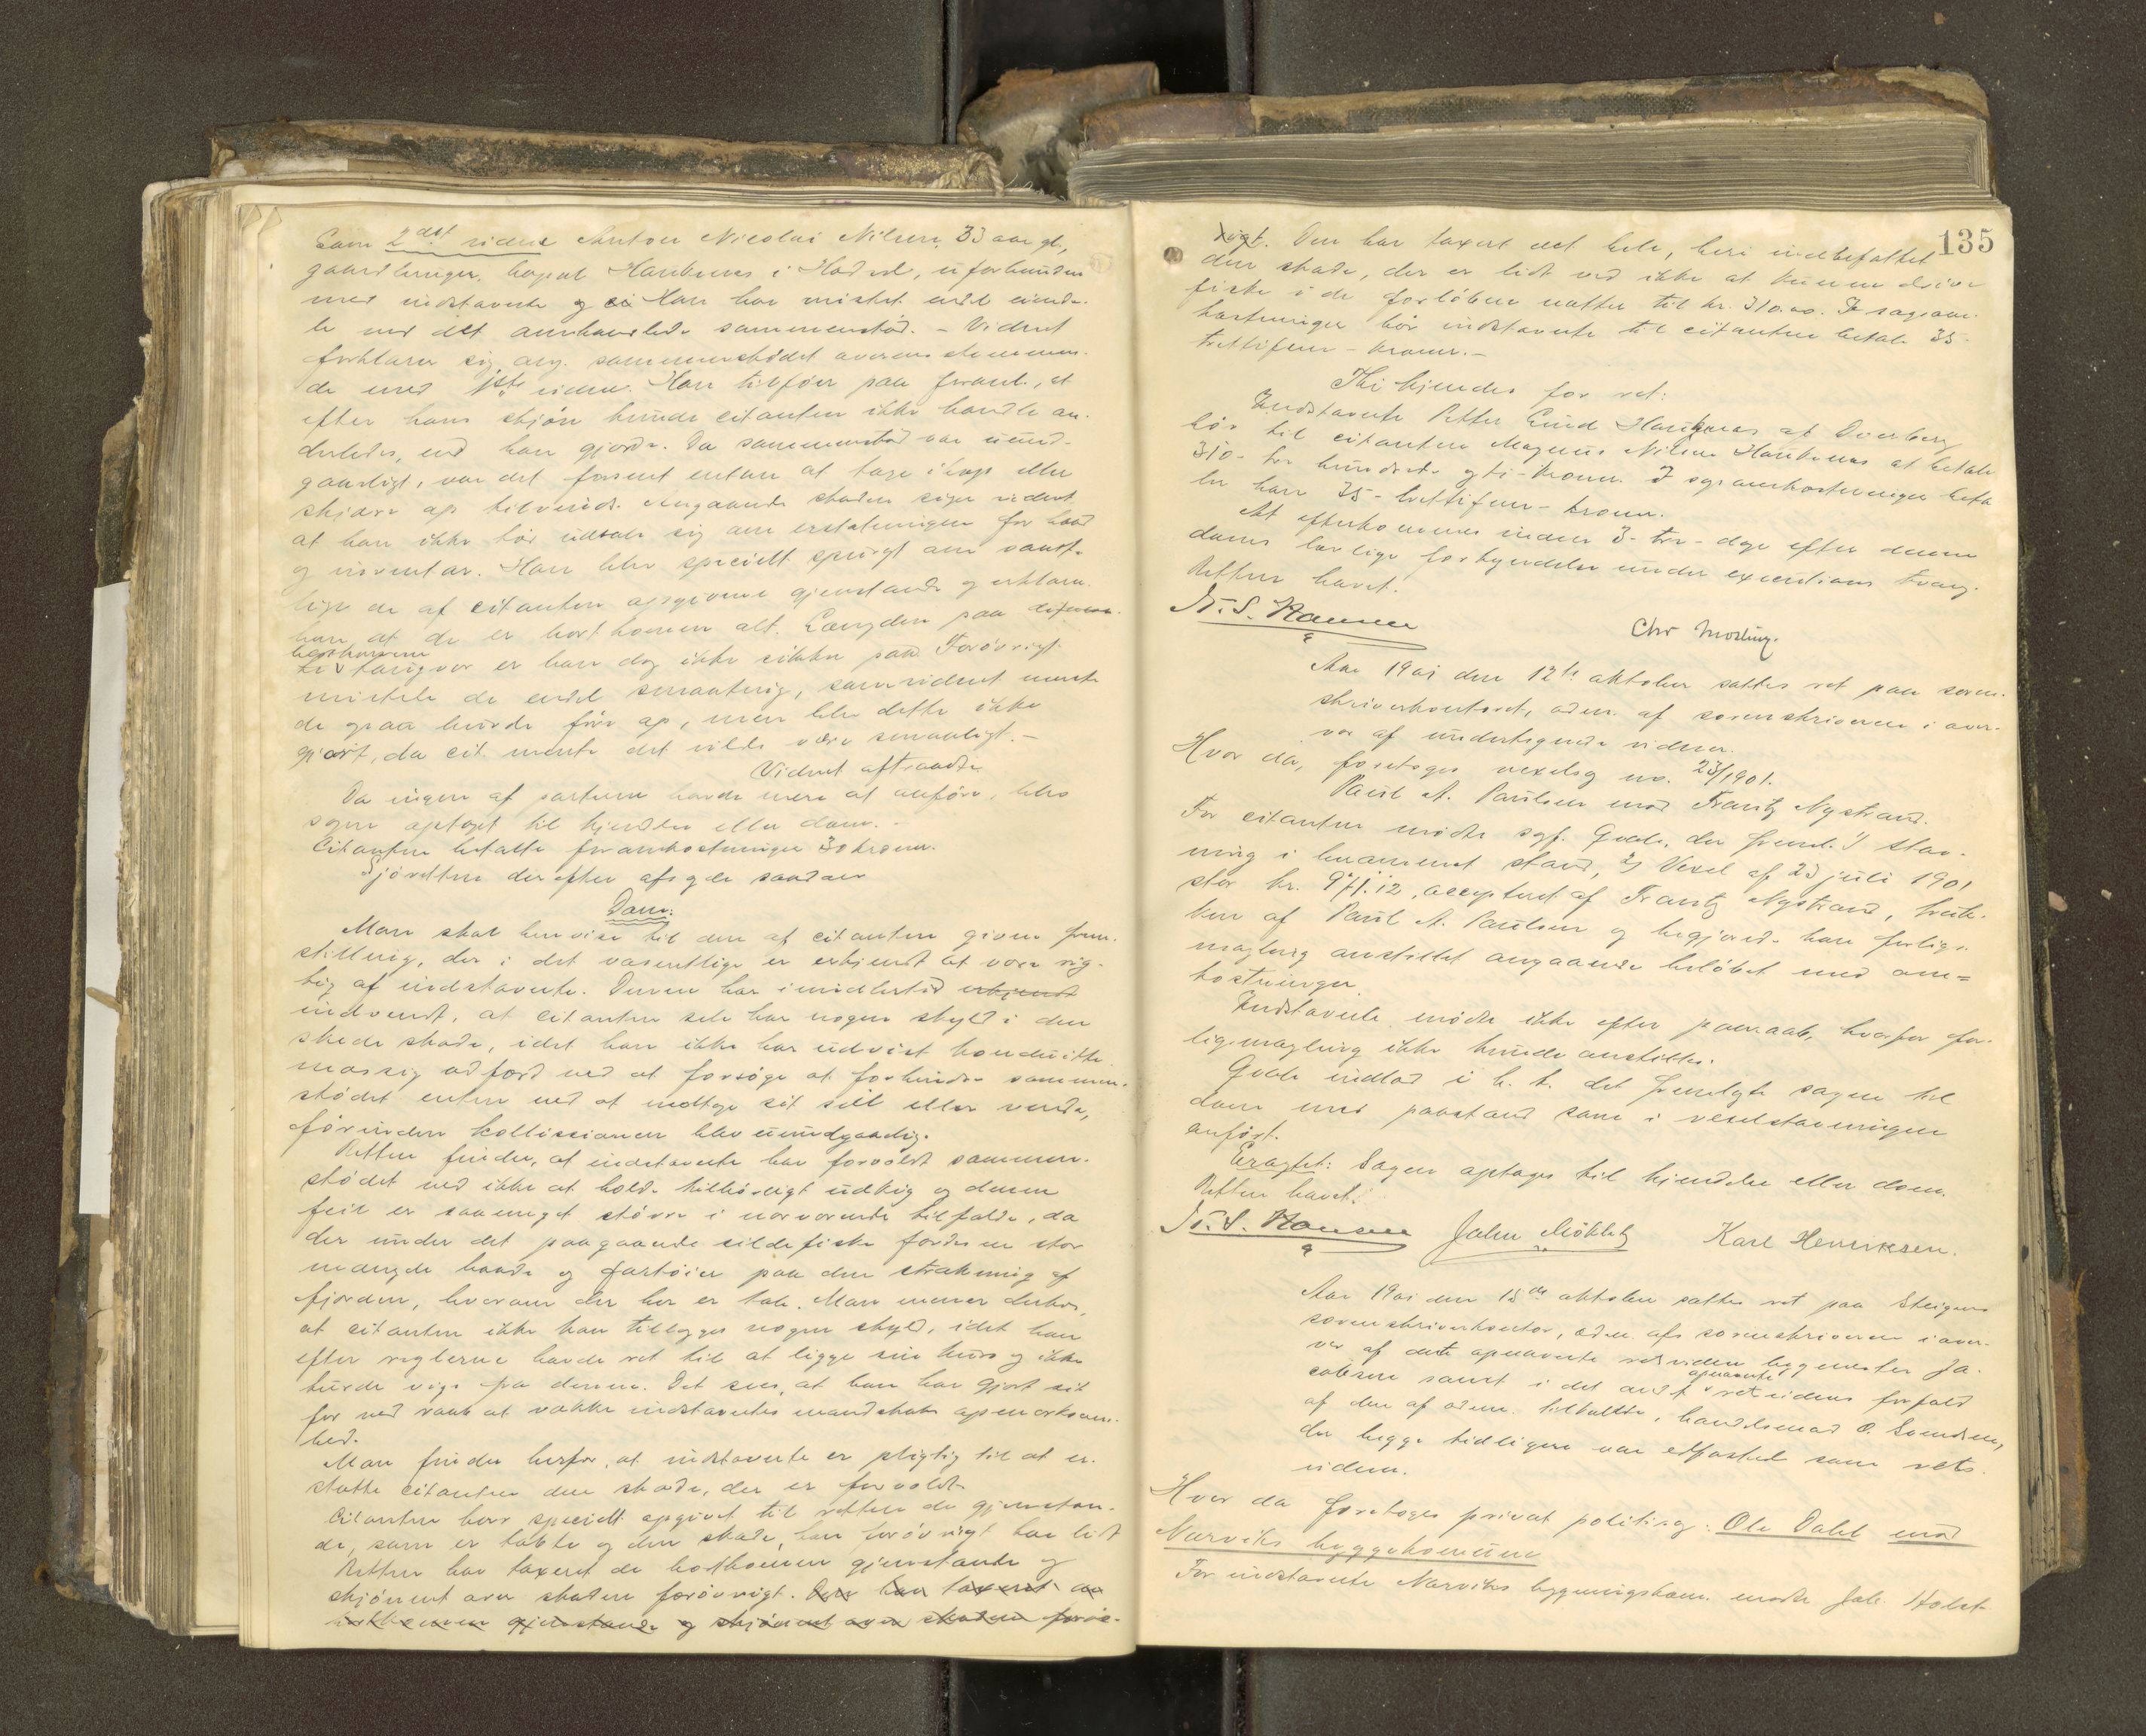 Som 2det vidne Anton Nicolai Nilsen, 33 aar gl,
gaardbruger, bopæl Haukenes i Hadsel, uforbunden
med indstævnte og Han har mistet endel
ved det omhandlede sammenstød. - Vidnet
forklarer sig ang. sammenstødet overensstemmen-
de med 1ste vidne. Han tilføier paa foranl., at
efter hans skjøn kunde citanten ikke handle an-
derledes, end han gjorde. Da sammenstød var uund-
gaaeligt, var det forsent enten at tage ilag eller
skjære op Angaaende skaden siger vidnet
at han ikke tør udtale sig om erstatningen for baad
og inventar. Han blev specielt spurgt om
lige de af citanten opgivne gjenstande og erklærer
han at de er bortkommen alt. Længden paa
bortkomne
er han dog ikke sikker paa Forøvrigt
mistede de endel smaating, som vidnet mente
de ogsaa burde føre op, men blev dette ikke
gjort, da cit. mente det vilde være smaaligt. -
Vidnet aftraadte
Da ingen af parterne havde mere at anføre, blev
sagen optaget til kjendelse eller dom. -
Citanten betalte foromkostninger 30 kroner.
Sjøretten derefter afsagde saadan
Dom:
Man skal henvise til den af citanten givne frem-
stilling, der i det væsentlige er erkjendt at være rig-
tig af indstævnte. Denne har imidlertid erkjendt
indvendt, at citanten selv har nogen skyld i den
skede skade, idet han ikke har udvist konduite-
mæssig adfærd ved at forsøge at forhindre sammen-
stødet enten ved at nedtage sit seil eller vende,
førinden kollissionen blev uundgaaelig.
Retten finder, at indstævnte har forvoldt sammen-
stødet ved ikke at holde tilbørligt udkig og denne
feil er saameget større i nærværende tilfælde, da
der under det paagaaende sildefiske færdes en stor
mængde baade og fartøier paa den strækning af
fjorden, hvorom der her er tale. Man mener derhos,
at citanten ikke kan tillægges nogen skyld, idet han
efter reglerne havde ret til at ligge sin kurs og ikke
turde vige fra denne. Det sees, at han har gjort sit
for ved raab at vække indstævntes mandskabs opmærksom-
hed.
Man finder herfor, at indstævnte er pligtig til at er-
statte citanten den skade, der er forvoldt.
Citanten har specielt opgivet til retten de gjenstan-
de, som er tabte og den skade, han forøvrigt har lidt
Retten har taxeret de bortkomne gjenstande og
skjønnet over skaden forøvrigt. Den har taxeret de
bortkomne gjenstande og skjønnet over skaden forøv-
135
rigt. Den har taxert det hele, heri indbefattet
den skade, der er lidt ved ikke at kunne drive
fiske i de forløbne nætter til kr. 310.00. I sagsom-
kostninger bør indstævnte til citanten betale 35-
trettifem - kroner. -
Thi kjendes for ret:
Indstævnte Petter Eind Haukenes af Dverberg
bør til citanten Magnus Nilsen Haukenes at betale
310 - tre hundrede og ti - kroner. I sagsomkostninger beta-
ler han 35 - trettifem - kroner.
At efterkommes inden 3 - tre - dage efter denne
doms lovlige forkyndelse under executions tvang.
Retten hævet.
N. S. Hansen
Chr Mosling.
Aar 1901 den 12te oktober sattes ret paa soren-
skriverkontoret, adm. af sorenskriveren i over-
vær af undertegnede vidner.
Hvor da, foretoges vexelsag no. 23/1901.
Paul A. Paulsen mod Frantz Nystrand.
For citanten mødte sagf. Gylde, der freml. 1) stæv-
ning i beramment stand, 2) Vexel af 23 juli 1901
stor kr. 971.12, accepteret af Frantz Nystrand, truk-
ken af Paul A. Paulsen og begjærede han forligs-
mægling anstillet angaaende beløbet med om-
kostninger.
Indstævnte mødte ikke efter paaraab, hvorfor for-
ligsmægling ikke kunde anstilles.
Gylde indlod i h. t. det fremlagte sagen til
dom med paastand som i vexelstævningen
anført.
Eragtet: Sagen optages til kjendelse eller dom.
Retten hævet.
N. S. Hansen John Møkleby Karl Henriksen.
Aar 1901 den 15de oktober sattes ret paa Steigens
sorenskriverkontor, adm. af sorenskriveren i over-
vær af det opnævnte retsvidne bygmester Ja-
cobsen samt i det andet opnævnte retsvidnes forfald
af den af adm. tilkaldte, handelsmand O. Svendsen,
der begge tidligere var edfæstet som rets-
vidner.
Hvor da foretoges privat politisag: Ole Dahl mod
Narviks byggekommune
For indstævnte Narviks bygningskom. mødte Jak. Holst